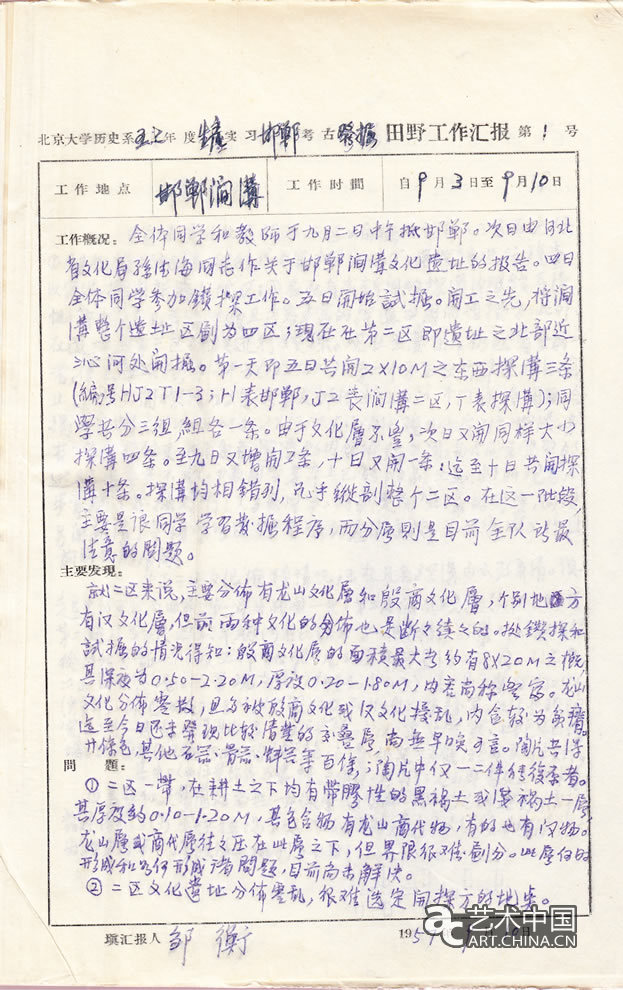 北京大学历史系五七年度生产实习邯郸考古發掘田野工作汇报第1号
工作地点 邯郸澗溝 工作时間 自9月3日至9月10日
工作概况：全体同学和教师于九月二日中午抵邯郸。次日由河北
省文化局孫德海同志作关于邯郸澗溝文化遗址的报告。四日
全体同学参加鑽探工作。五日開始試掘。開工之先，将澗
溝整个遗址区劃为四区；現在在第二区即遗址之北部近
沁河处開掘。第一天即五日共開2×10M之东西探溝三条
(編号HJ2T1-3；H表邯郸，J2表澗溝二区，T表探溝)；同
學共分三組，組各一条。由于文化層不豐，次日又開同样大小
探溝四条。至九日又增開2条，十日又開一条；迄至十日共開探
溝十条。探溝均相錯列，几乎縱剖整个二区。在这一阶段，
主要是讓同学学习發掘程序，而分层則是目前全队所最
注意的問题。
主要发現：
就二区来说，主要分佈有龙山文化層和殷商文化層，个别地方
有汉文化層，但前两种文化的分佈也是断々续々的。从鑽探和
試掘的情况得知：殷商文化层的面積最大者約有8×20M之概，
其深度为0.50-2.20M，厚度0.20-1.80M，内容尚称密富。龙山
文化分佈零散，且多被殷商文化或汉文化擾乱，内含較为貧瘠。
迄至今日还未發現比較清楚的交疊层，尚無早晚可言。陶片共1洋
其他石器、骨器、蚌器等百件，陶片中仅一二件能復原者。
問題：
①二区一带，在耕土之下均有带膠性的黑褐土或淺褐土一层
其厚度約0.10-1.20M，其包含物有龙山商代物，有的也有汉物。
龙山层或商代层往々压在此层之下，但界限很难劃分。此层何时
形成和如何形成諸問題，目前尚未解决。
②二区文化遗址分佈零乱，很难选定開探方的地点。
填汇报人 邹衡 195
艺术中国
ART.CHINA.CN